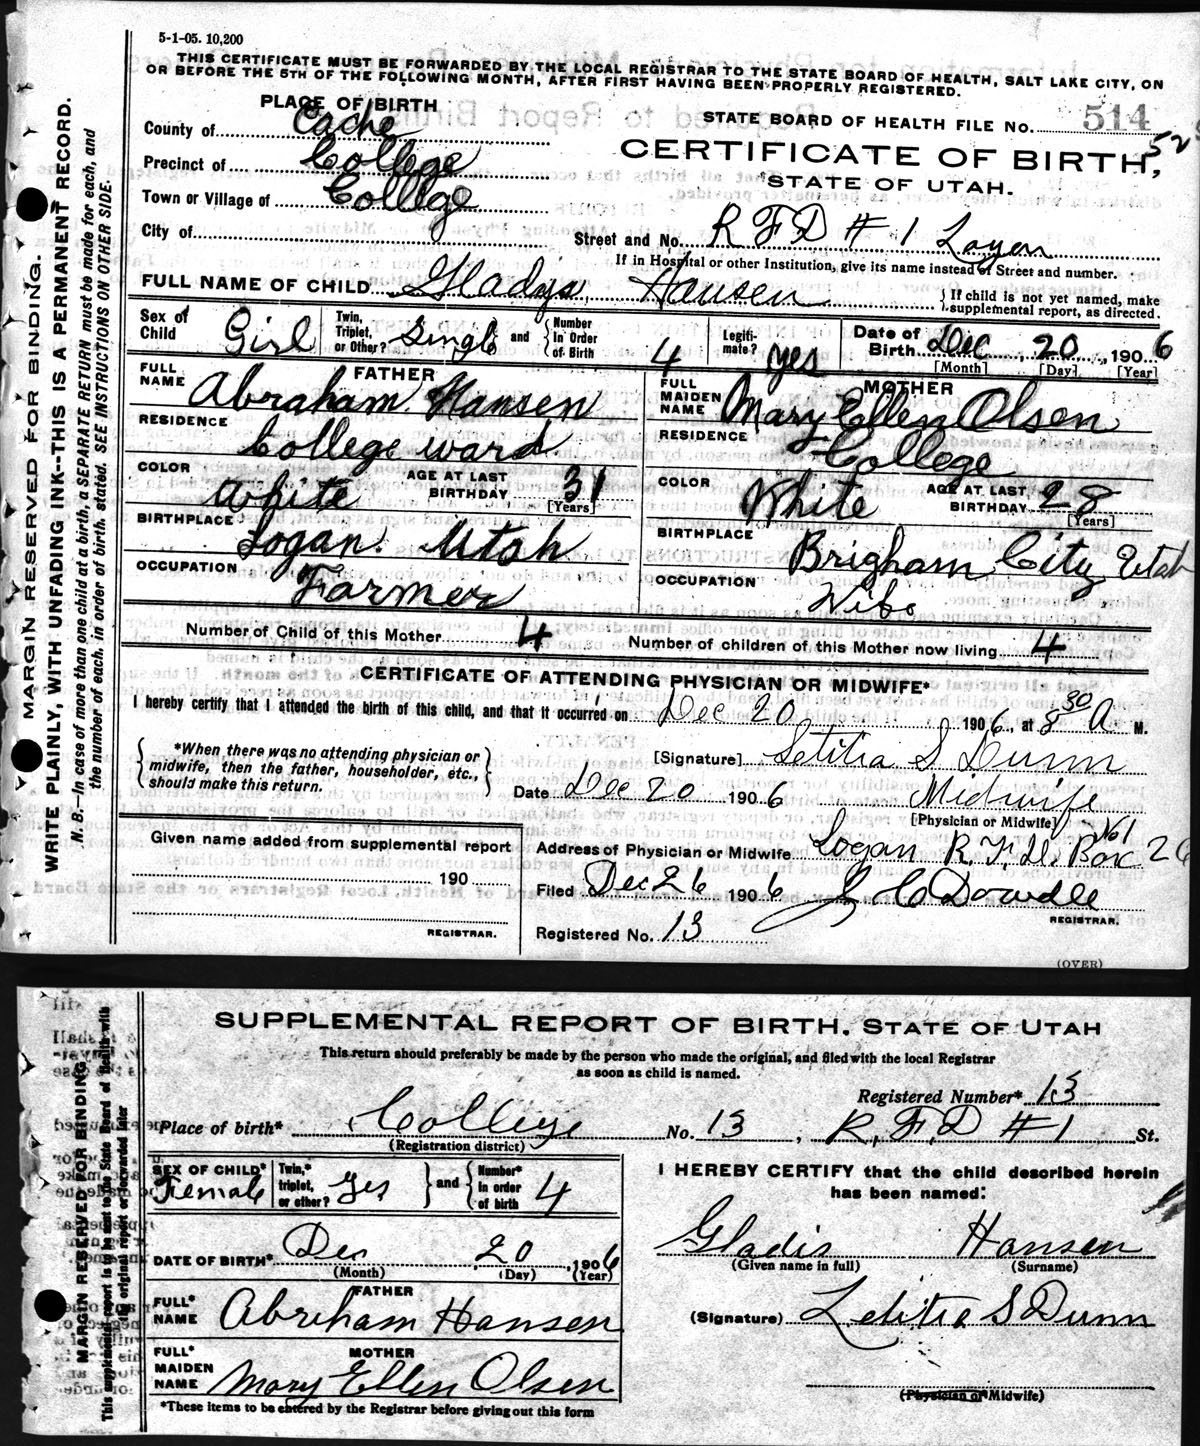 5-1-05. 10,200
THIS CERTIFICATE MUST BE FORWARDED BY THE LOCAL REGISTRAR TO THE STATE BOARD OF HEALTH, SALT LAKE CITY, ON
OR BEFORE THE 5TH OF THE FOLLOWING MONTH, AFTER FIRST HAVING BEEN PROPERLY REGISTERED.
MARGIN RESERVED FOR BINDING.
WRITE PLAINLY, WITH UNFADING INK--THIS IS A PERMANENT RECORD.
N. B.—In case of more than one child at a birth, a SEPARATE RETURN must be made for each, and
the number of each, in order of birth, stated. SEE INSTRUCTIONS ON OTHER SIDE.
PLACE OF BIRTH
County of Cache
Precinct of College
Town or Village of College
City of
STATE BOARD OF HEALTH FILE No. 514
52
CERTIFICATE OF BIRTH,
STATE OF UTAH.
Street and No. R F D # 1 Logan
If in Hospital or other Institution, give its name instead of Street and number.
FULL NAME OF CHILD Gladys Hansen
If child is not yet named, make
supplemental report, as directed.
Sex of Child Girl
Twin, Triplet, or Other? Single and Number In Order of Birth 4
Legiti-mate? yes
Date of Birth Dec 20, 1906
[Month] [Day] [Year]
FATHER
FULL NAME Abraham Hansen
RESIDENCE College ward
COLOR White
AGE AT LAST BIRTHDAY 31
[Years]
BIRTHPLACE Logan. Utah
OCCUPATION Farmer
MOTHER
FULL MAIDEN NAME Mary Ellen Olsen
RESIDENCE College
COLOR White
AGE AT LAST BIRTHDAY 28
[Years]
BIRTHPLACE Brigham City Utah
OCCUPATION Wife
Number of Child of this Mother 4
Number of children of this Mother now living 4
CERTIFICATE OF ATTENDING PHYSICIAN OR MIDWIFE*
I hereby certify that I attended the birth of this child, and that it occurred on Dec 20 1906, at 8 30 A M.
*When there was no attending physician or
midwife, then the father, householder, etc.,
should make this return.
[Signature] Letitia S Dunn
Date Dec 20 1906 Midwife
[Physician or Midwife]
Address of Physician or Midwife Logan R. F. D. No 1 Box 26
Filed Dec 26 1906 J C Dowdle
REGISTRAR.
Registered No. 13
Given name added from supplemental report
190
REGISTRAR.
(OVER)
SUPPLEMENTAL REPORT OF BIRTH. STATE OF UTAH
This return should preferably be made by the person who made the original, and filed with the local Registrar
as soon as child is named.
MARGIN RESERVED FOR BINDING
This supplemental report is to be sent to the State Board of Health with
the original report or forwarded later
Registered Number* 13
Place of birth* College No. 13, R. F. D # 1 St.
(Registration district)
SEX OF CHILD* Female
Twin,* triplet, or other? Yes and Number* in order of birth 4
DATE OF BIRTH* Dec 20, 1906
(Month) (Day) (Year)
FATHER
FULL* NAME Abreham Hansen
MOTHER
FULL* MAIDEN NAME Mary Ellen Olsen
*These items to be entered by the Registrar before giving out this form
I HEREBY CERTIFY that the child described herein
has been named:
Gladis Hansen
(Given name in full) (Surname)
(Signature) Letitia S Dunn
(Physician or Midwife)